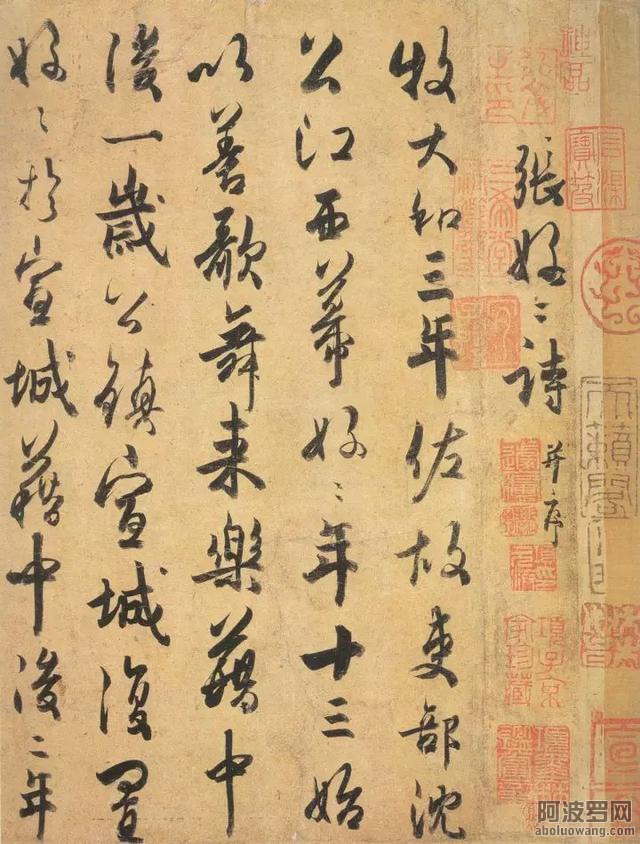 張好〻詩 并序
牧大和三年佐故吏部沈
公江西幕好〻年十三始
以善歌舞來樂籍中
後一歲公鎮宣城復置
好〻於宣城籍中後二年
天籟閣
項子京家珍藏
阿波罗网
aboluowang.com